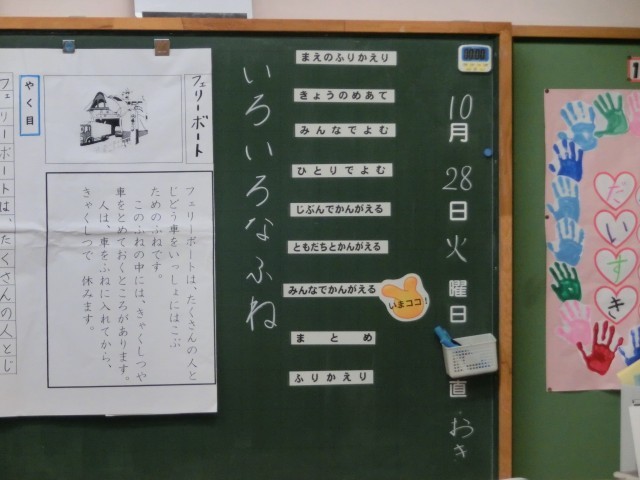 10月28日火曜日
直
おき
まえのふりかえり
きょうのめあて
みんなでよむ
ひとりでよむ
じぶんでかんがえる
ともだちとかんがえる
みんなでかんがえる
いまココ!
まとめ
ふりかえり
いろいろなふね
フェリーボート
フェリーボートは、たくさんの人と
じどう車をいっしょにはこぶ
ためのふねです。
このふねの中には、きゃくしつや
車をとめておくところがあります。
人は、車をふねに入れてから、
きゃくしつで 休みます。
やく目
フェリーボートは、たくさんの人とじ
だいすき
10:00
1